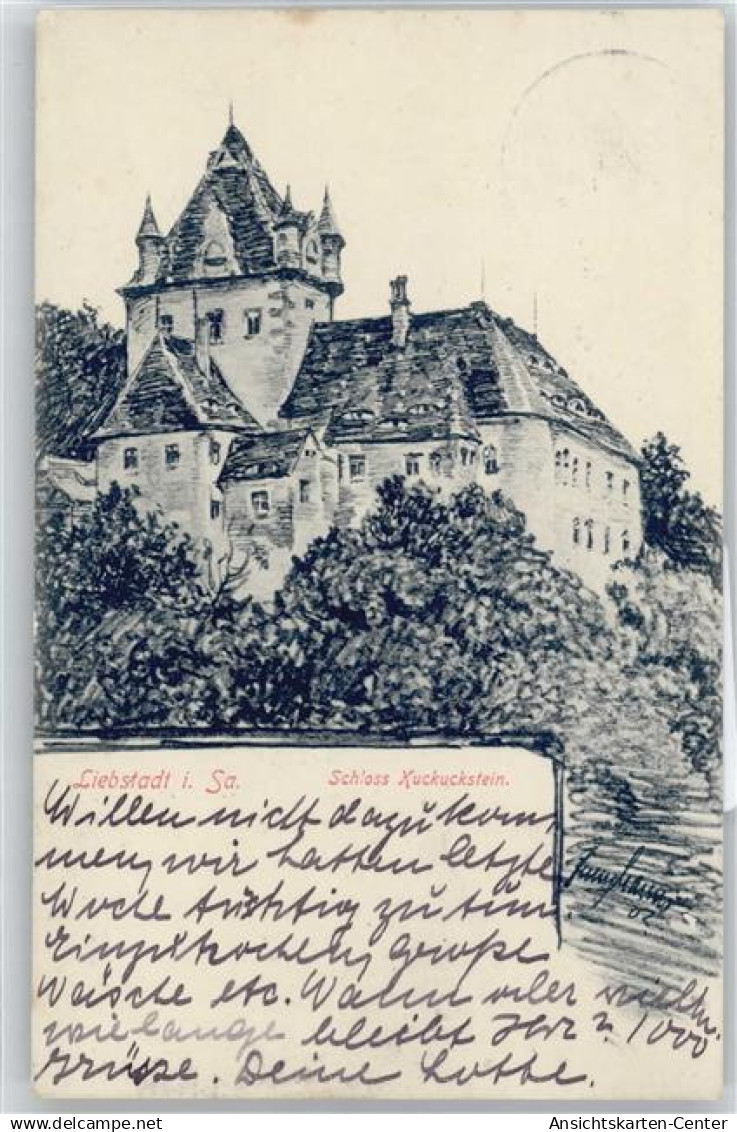 Liebstadt i. Sa. Schloss Kuckuckstein.
Willen nicht dazu kom,
men, wir hatten letzte
Woche tüchtig zu tun.
große
Wäsche etc. Wann oder
wie lange bleibt Ihr? 1000
Grüsse. Deine Lotte.
Junghanns
02
Ansichtskarten-Center